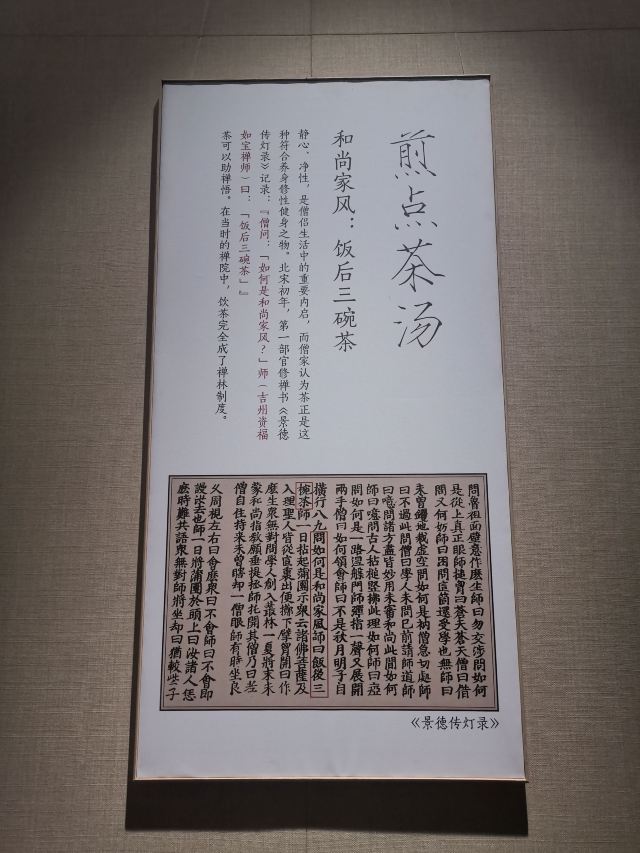 煎点茶汤
和尚家风：饭后三碗茶
静心、净性，是僧侣生活中的重要内启，而僧家认为茶正是这
种符合养身修性健身之物。北宋初年，第一部官修禅书《景德
传灯录》记录：『僧问：「如何是和尚家风？」师（吉州资福
如宝禅师）曰：「饭后三碗茶」』
茶可以助禅悟。在当时的禅院中，饮茶完全成了禅林制度。
問魯祖面壁意作麽生師曰勿交涉問如何
是從上真正眼師搥胷曰蒼天蒼天僧曰借
問又何妨師曰困問這箇還受學也無師曰
未曾钁地栽虛空問如何是衲僧急切處師
曰不過此問僧曰學人未問已前請師道師
曰噫問諸方盡皆妙用未審和尚此間如何
師曰噫問古人拈槌竪拂此理如何師曰瘂
問如何是一路涅槃門師彈指一聲又展開
兩手僧曰如何領會師曰不是秋月明子自
橫行八九問如何是和尚家風師曰飯後三
椀茶師一日拈起蒲團示衆云諸佛菩薩及
入理聖人皆從這裏出便擲下擘胷開曰作
麽生衆無對問學人創入叢林一夏將末未
蒙和尚指教願垂提拯師托開其僧乃曰老
僧自住持來未曾瞎却一僧眼師有時坐良
久周視左右曰會麽衆曰不會師曰不會即
謾汝去也師一日將蒲團於頭上曰汝諸人恁
麽時難共語衆無對師將坐却曰猶較些子
《景德传灯录》